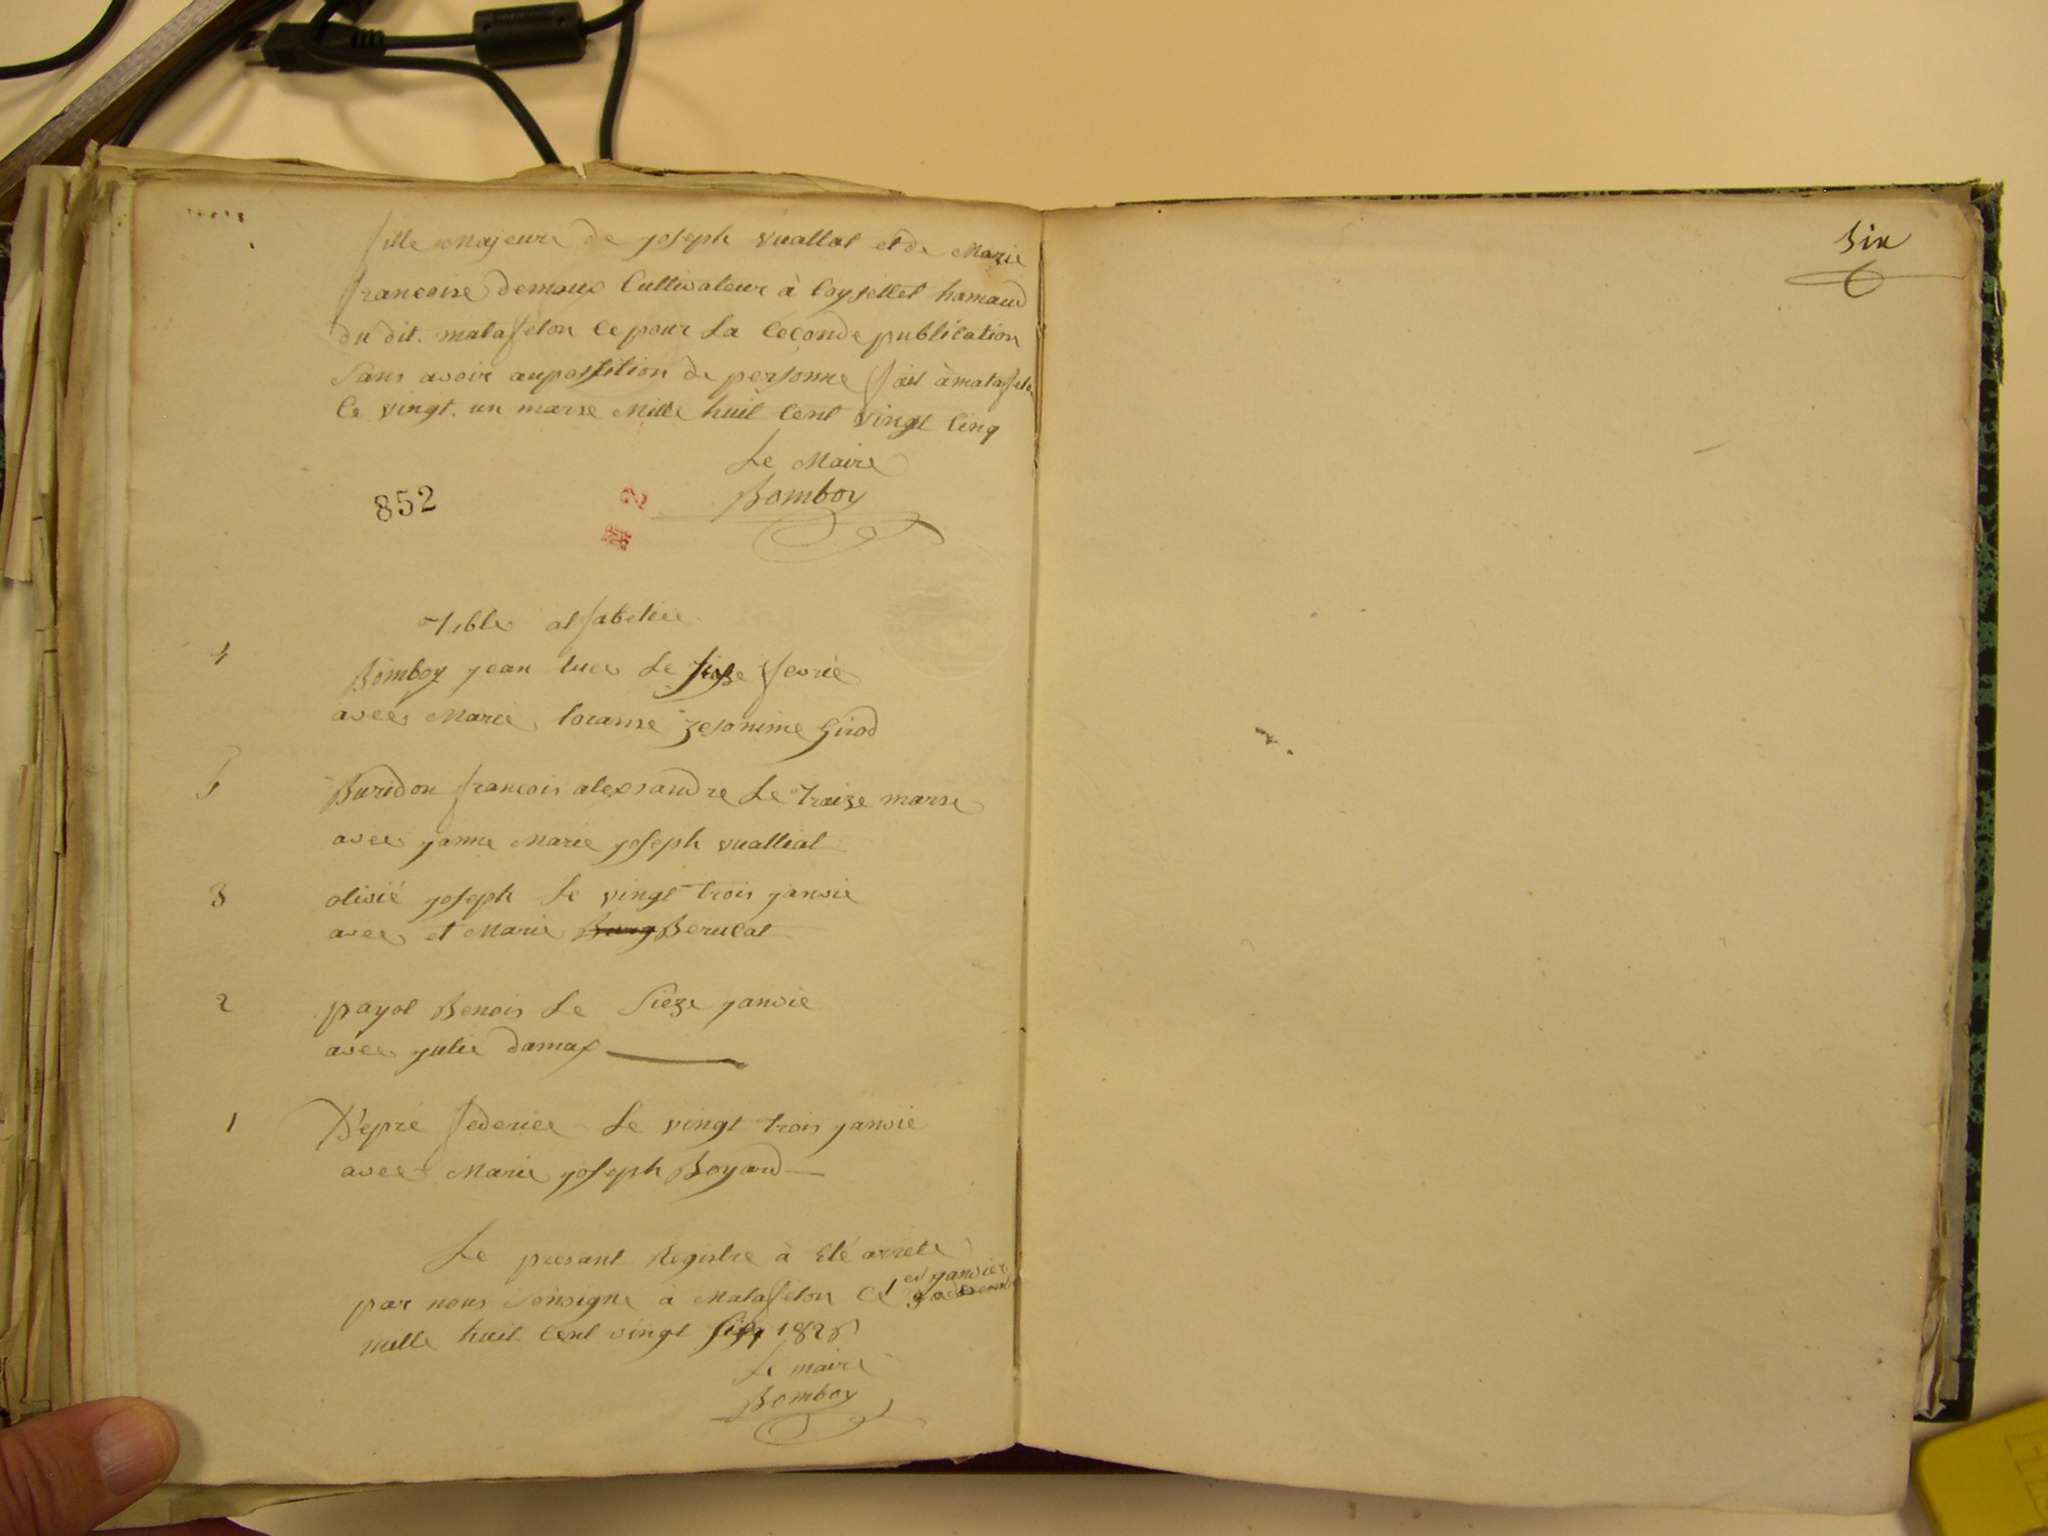 fille Majeure de joseph vuallat et de Marie
francoise demoux Cultivateur à Coysellet hamaud
du dit. matafelon Ce pour La Ceconde publication
Sans avoir aupossition de personne fait à matafelon
Ce vingt. un marse Mille huit Cent vingt Cinq
Le Maire
Bomboy
852
2
Table alfabetice
4
Bomboy jean luc Le fevrie
avec Marie Girod
5
Buridon francois alexsandre Le traize marse
avec janne Marie joseph vualliat
3
olivié joseph Le vingt trois janvie
avec et Marie Berucat
2
payot Benois Le Sieze janvie
avec julie damax
1
D'epré federice Le vingt trois janvie
avec Marie joseph Boyard
Le presant Registre à Eté arrete
par nous Sousigne a Matafelon Ce 1er janvier
mille huit Cent vingt Six 1826
Le maire
Bomboy
Six